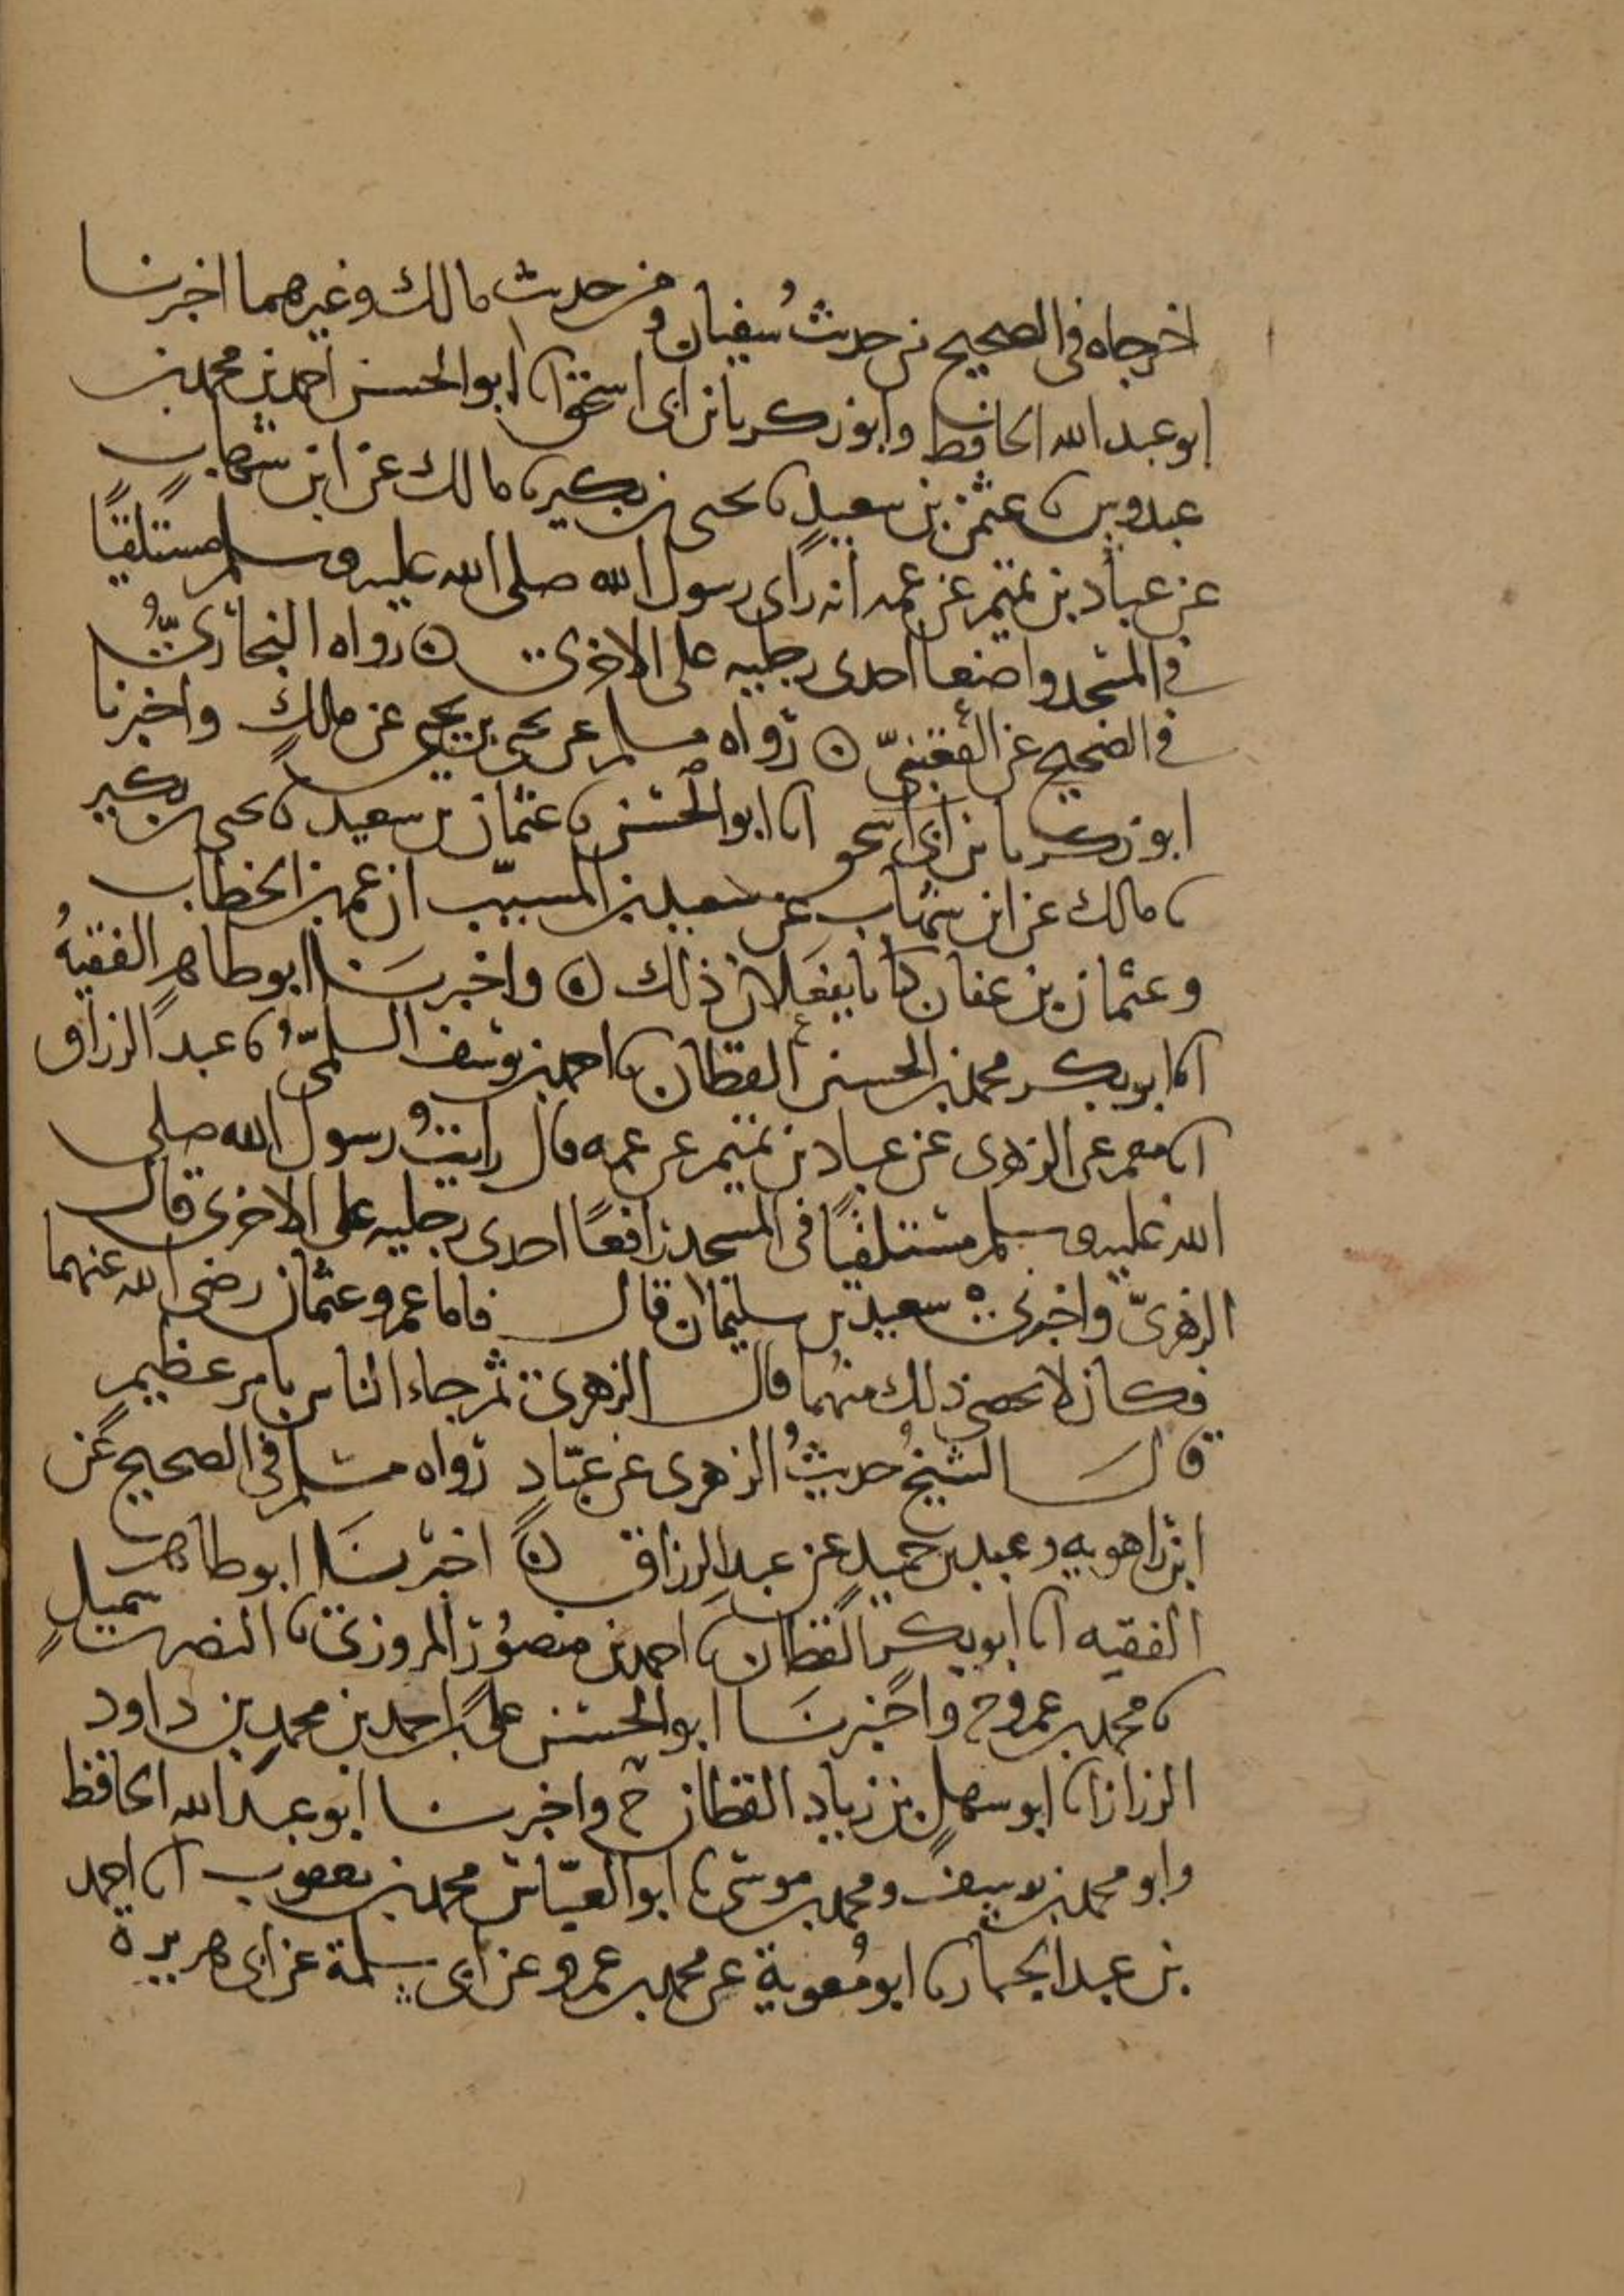 اخرجاه في الصحيح من حديث سُفيان ومن حديث مالك وغيرهما اخبرنا
ابو عبد الله الحافظ وابو زكريا بن ابي اسحق انا ابو الحسن احمد بن محمد بن
عبدوس نا عثمن بن سعيدٍ نا يحيى بن بكير نا مالك عن ابن شهابٍ
عن عباد بن تميم عن عمه انه رأى رسول الله صلى الله عليه وسلم مستلقيًا
في المسجد واضعا احدى رجليه على الاخرى ۞ رواه البخاريُّ
في الصحيح عن القعنبيّ ۞ رواه مسلم عن يحيى بن يحيى عن مالكٍ واخبرنا
ابو زكريا بن ابي اسحق انا ابو الحسن نا عثمان بن سعيد نا يحيى بن بكير
نا مالك عن ابن شهاب عن سعيد بن المسيّب ان عمر بن الخطاب
وعثمان بن عفان كانا يفعَلان ذلك ۞ واخبرنَا ابو طاهر الفقيهُ
انا ابو بكر محمد بن الحسين القطان نا احمد بن يوسف السلميّ نا عبد الرزاق
انا معمر عن الزهري عن عباد بن تميم عن عمه قال رايتُ رسول الله صلى
الله عليه وسلم مستلقيًا في المسجد رافعًا احدى رجليه على الاخرى قال
الزهريّ واخبرني سعيد بن سليمان قال فاما عمر وعثمان رضي الله عنهما
فكان لا يحصى ذلك منهما قال الزهري ثم جاء الناس بامر عظيم
قالَ الشيخُ حديثُ الزهري عن عبّادٍ رواه مسلم في الصحيح عن
ابن راهويه وعبد بن حميدٍ عن عبد الرزاق ۞ اخبرنَا ابو طاهر
الفقيه انا ابو بكر القطان نا احمد بن منصور المروزي نا النضر بن شميلٍ
نا محمد بن عمرو ح واخبرنَا ابو الحسن علي بن احمد بن محمد بن داود
الرزاز انا ابو سهلٍ بن زيادٍ القطان ح واخبرنا ابو عبد الله الحافظ
وابو محمد بن يوسف ومحمد بن موسى نا ابو العبّاس محمد بن يعقوب انا احمد
بن عبد الجبار نا ابو مُعوية عن محمد بن عمرو عن ابي سلمة عن ابي هريرة